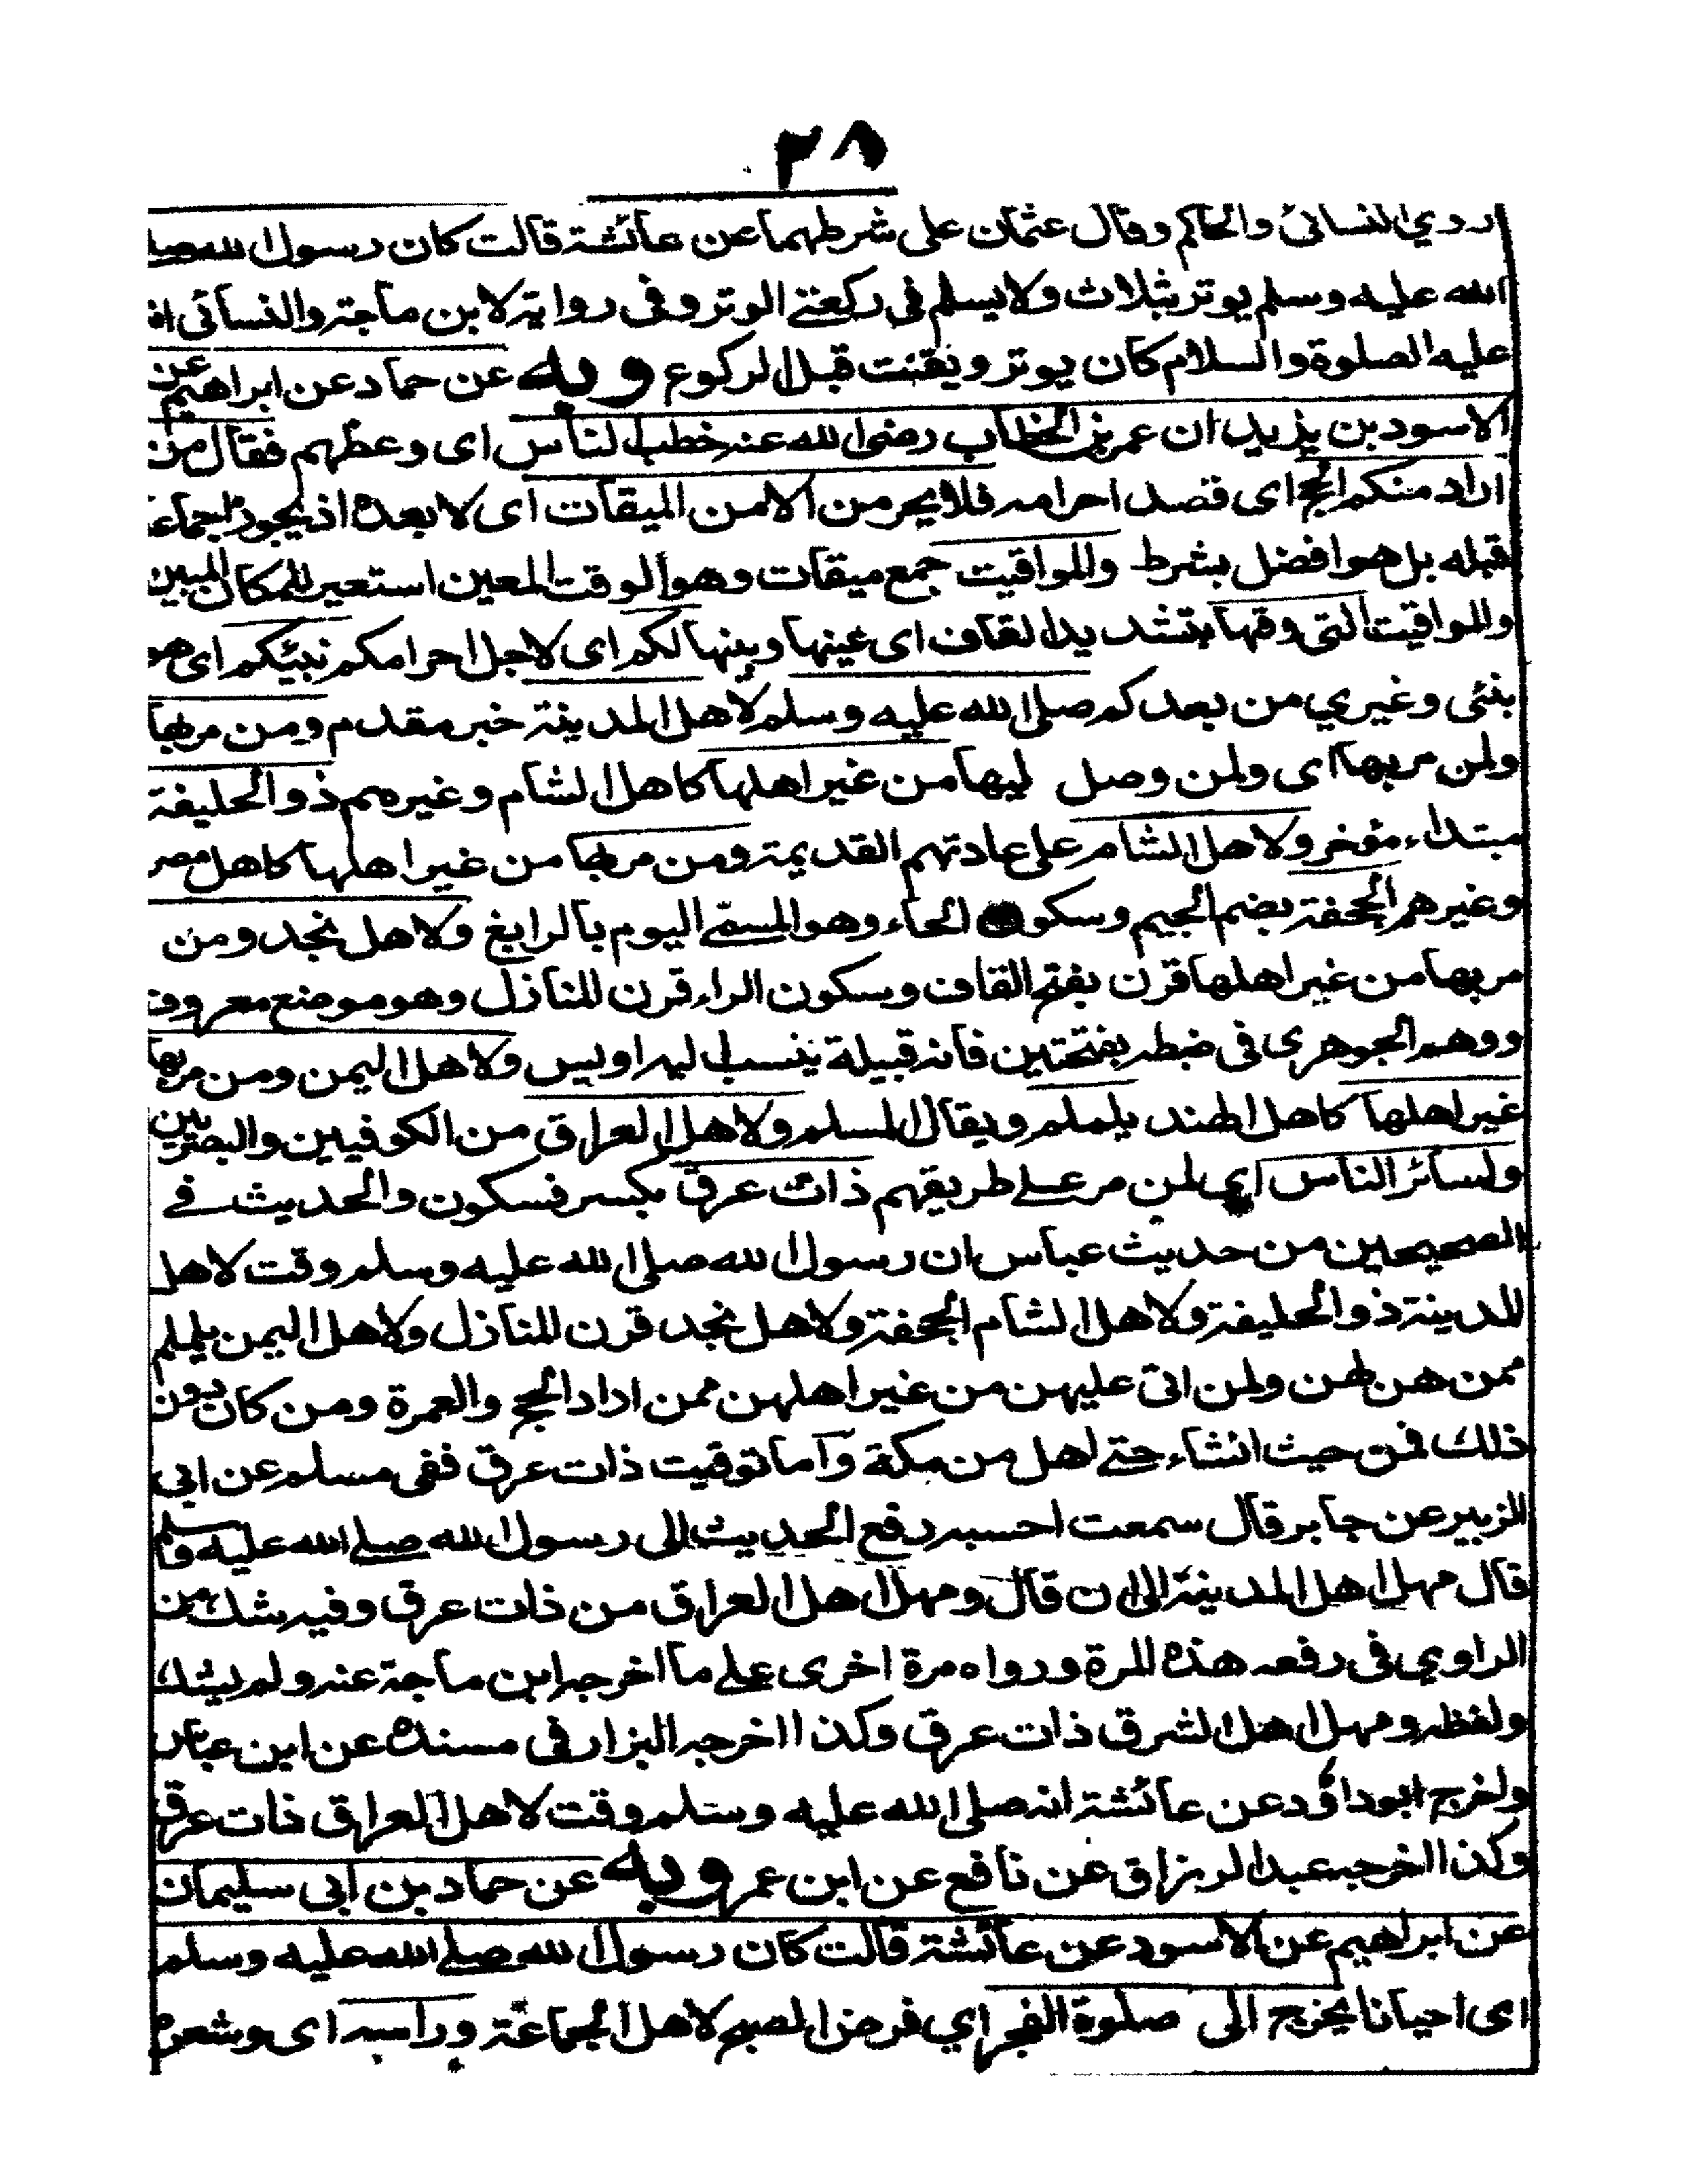 ٢٨
روي النسائى والحاكم وقال عثمان على شرطهما عن عائشة قالت كان رسول الله صلى
الله عليه وسلم يوتر بثلاث ولا يسلم فى ركعتے الوتر وفى رواية لابن ماجة والنسائى انه
عليه الصلوة والسلام كان يوتر ويقنت قبل الركوع وبه عن حماد عن ابراهيم عن
الاسود بن يزيد ان عمر بن الخطاب رضى الله عنه خطب الناس اى وعظهم فقال من
اراد منكم الحج اى قصد احرامه فلا يحرمن الا من الميقات اى لا بعده اذ يجوز اجماعا
قبله بل هو افضل بشرط والمواقيت جمع ميقات وهو الوقت المعين استعير للمكان المبين
والمواقيت التى وقتها بتشديد القاف اى عينها وبينها لكم اى لاجل احرامكم نبيكم اى هو
بنئى وغيري من بعدكم صلى الله عليه وسلم لاهل المدينة خبر مقدم ومن مر بها
ولمن مر بها اى ولمن وصل ليها من غير اهلها كاهل الشام وغيرهم ذو الحليفة
مبتداء مؤخر ولاهل الشام على عادتهم القديمة ومن مر بها من غير اهلها كاهل مصر
وغيرهم الجحفة بضم الجيم وسكون الحاء وهو المسمّے اليوم بالرابغ ولاهل نجد ومن
مر بها من غير اهلها قرن بفتح القاف وسكون الراء قرن المنازل وهو موضع معروف
ووهم الجوهرى فى ضبطه بفتحتين فانه قبيلة ينسب اليه اويس ولاهل اليمن ومن مر بها
غير اهلها كاهل الهند يلملم ويقال المسلم ولاهل العراق من الكوفيين والبصريين
ولسائر الناس اي لمن مر علے طريقهم ذات عرق بكسر فسكون والحديث فے
الصحيحين من حديث عباس ان رسول الله صلى الله عليه وسلم وقت لاهل
المدينة ذو الحليفة ولاهل الشام الجحفة ولاهل نجد قرن المنازل ولاهل اليمن يلملم
ممن هن لهن ولمن اتى عليهن من غير اهلهن ممن اراد الحج والعمرة ومن كان دون
ذلك فمن حيث انشاء حتے اهل من مكة واما توقيت ذات عرق ففى مسلم عن ابى
الزبير عن جابر قال سمعت احسبه رفع الحديث الى رسول الله صلے الله عليه وسلم
قال مهل اهل المدينة الى ان قال ومهل اهل العراق من ذات عرق وفيه شك من
الراوي فى رفعه هذه المرة ورواه مرة اخرى علے ما اخرجه ابن ماجة عنه ولم يشك
ولفظه ومهل اهل الشرق ذات عرق وكذا اخرجه البزار فى مسنده عن ابن عباس
واخرج ابوداؤد عن عائشة انه صلى الله عليه وسلم وقت لاهل العراق ذات عرق
وكذا اخرجه عبد الرزاق عن نافع عن ابن عمر وبه عن حماد بن ابى سليمان
عن ابراهيم عن الاسود عن عائشة قالت كان رسول الله صلے الله عليه وسلم
اى احيانا يخرج الى صلوة الفجر اي فرض الصبح لاهل الجماعة وراسه اى وشعره